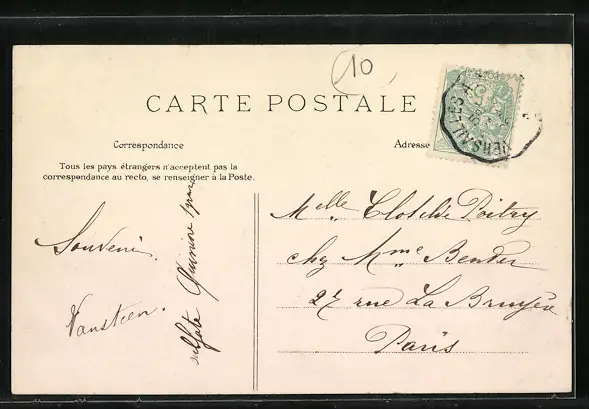 10
CARTE POSTALE
VERSAILLES
Correspondance
Adresse
Tous les pays étrangers n'acceptent pas la
correspondance au recto, se renseigner à la Poste.
Souvenir.
Vansteen.
Quinine
Melle Clotilde Poitry
chez Mme Bender
27 rue La Bruyère
Paris